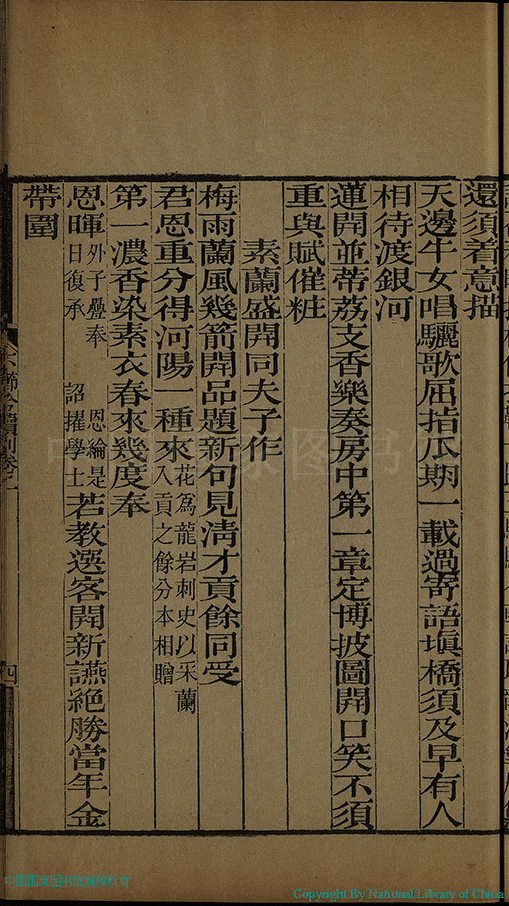 還須着意描
天邊牛女唱驪歌屈指瓜期一載過寄語塡橋須及早有人
相待渡銀河
蓮開並蒂荔支香樂奏房中第一章定博披圖開口笑不須
重與賦催粧
素蘭盛開同夫子作
梅雨蘭風幾箭開品題新句見淸才貢餘同受
君恩重分得河陽一種來花爲龍岩刺史以采蘭入貢之餘分本相贈
第一濃香染素衣春來幾度奉
恩暉外子疊奉恩綸是日復承詔擢學士若教選客開新讌絶勝當年金
帶圍
四
Copyright By National Library of China